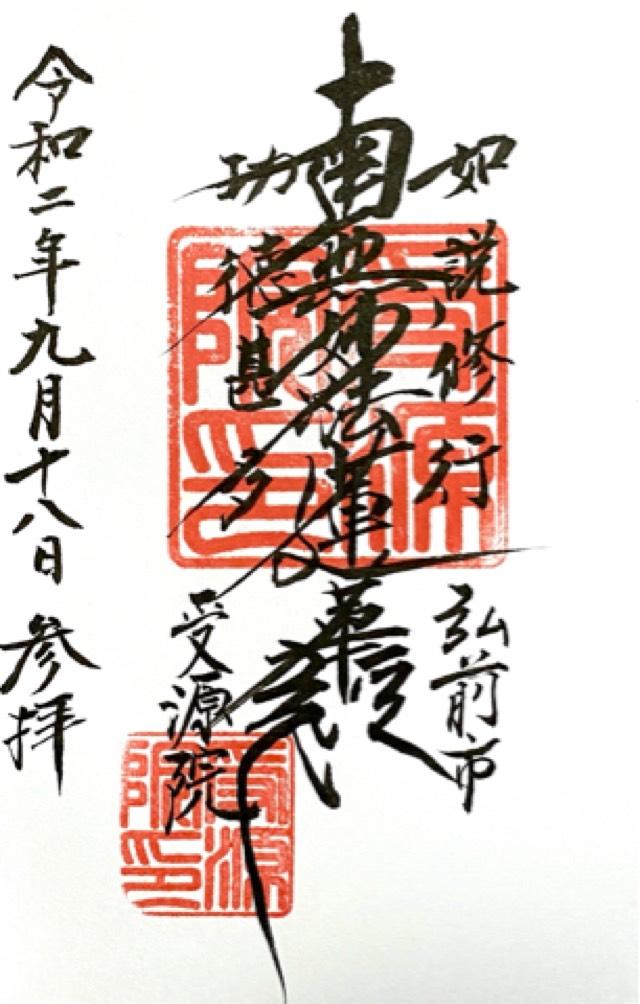 如説修行
弘前市
南無妙法蓮華経
功徳甚多
受源院
受源院印
受源院印
令和二年九月十八日 参拝